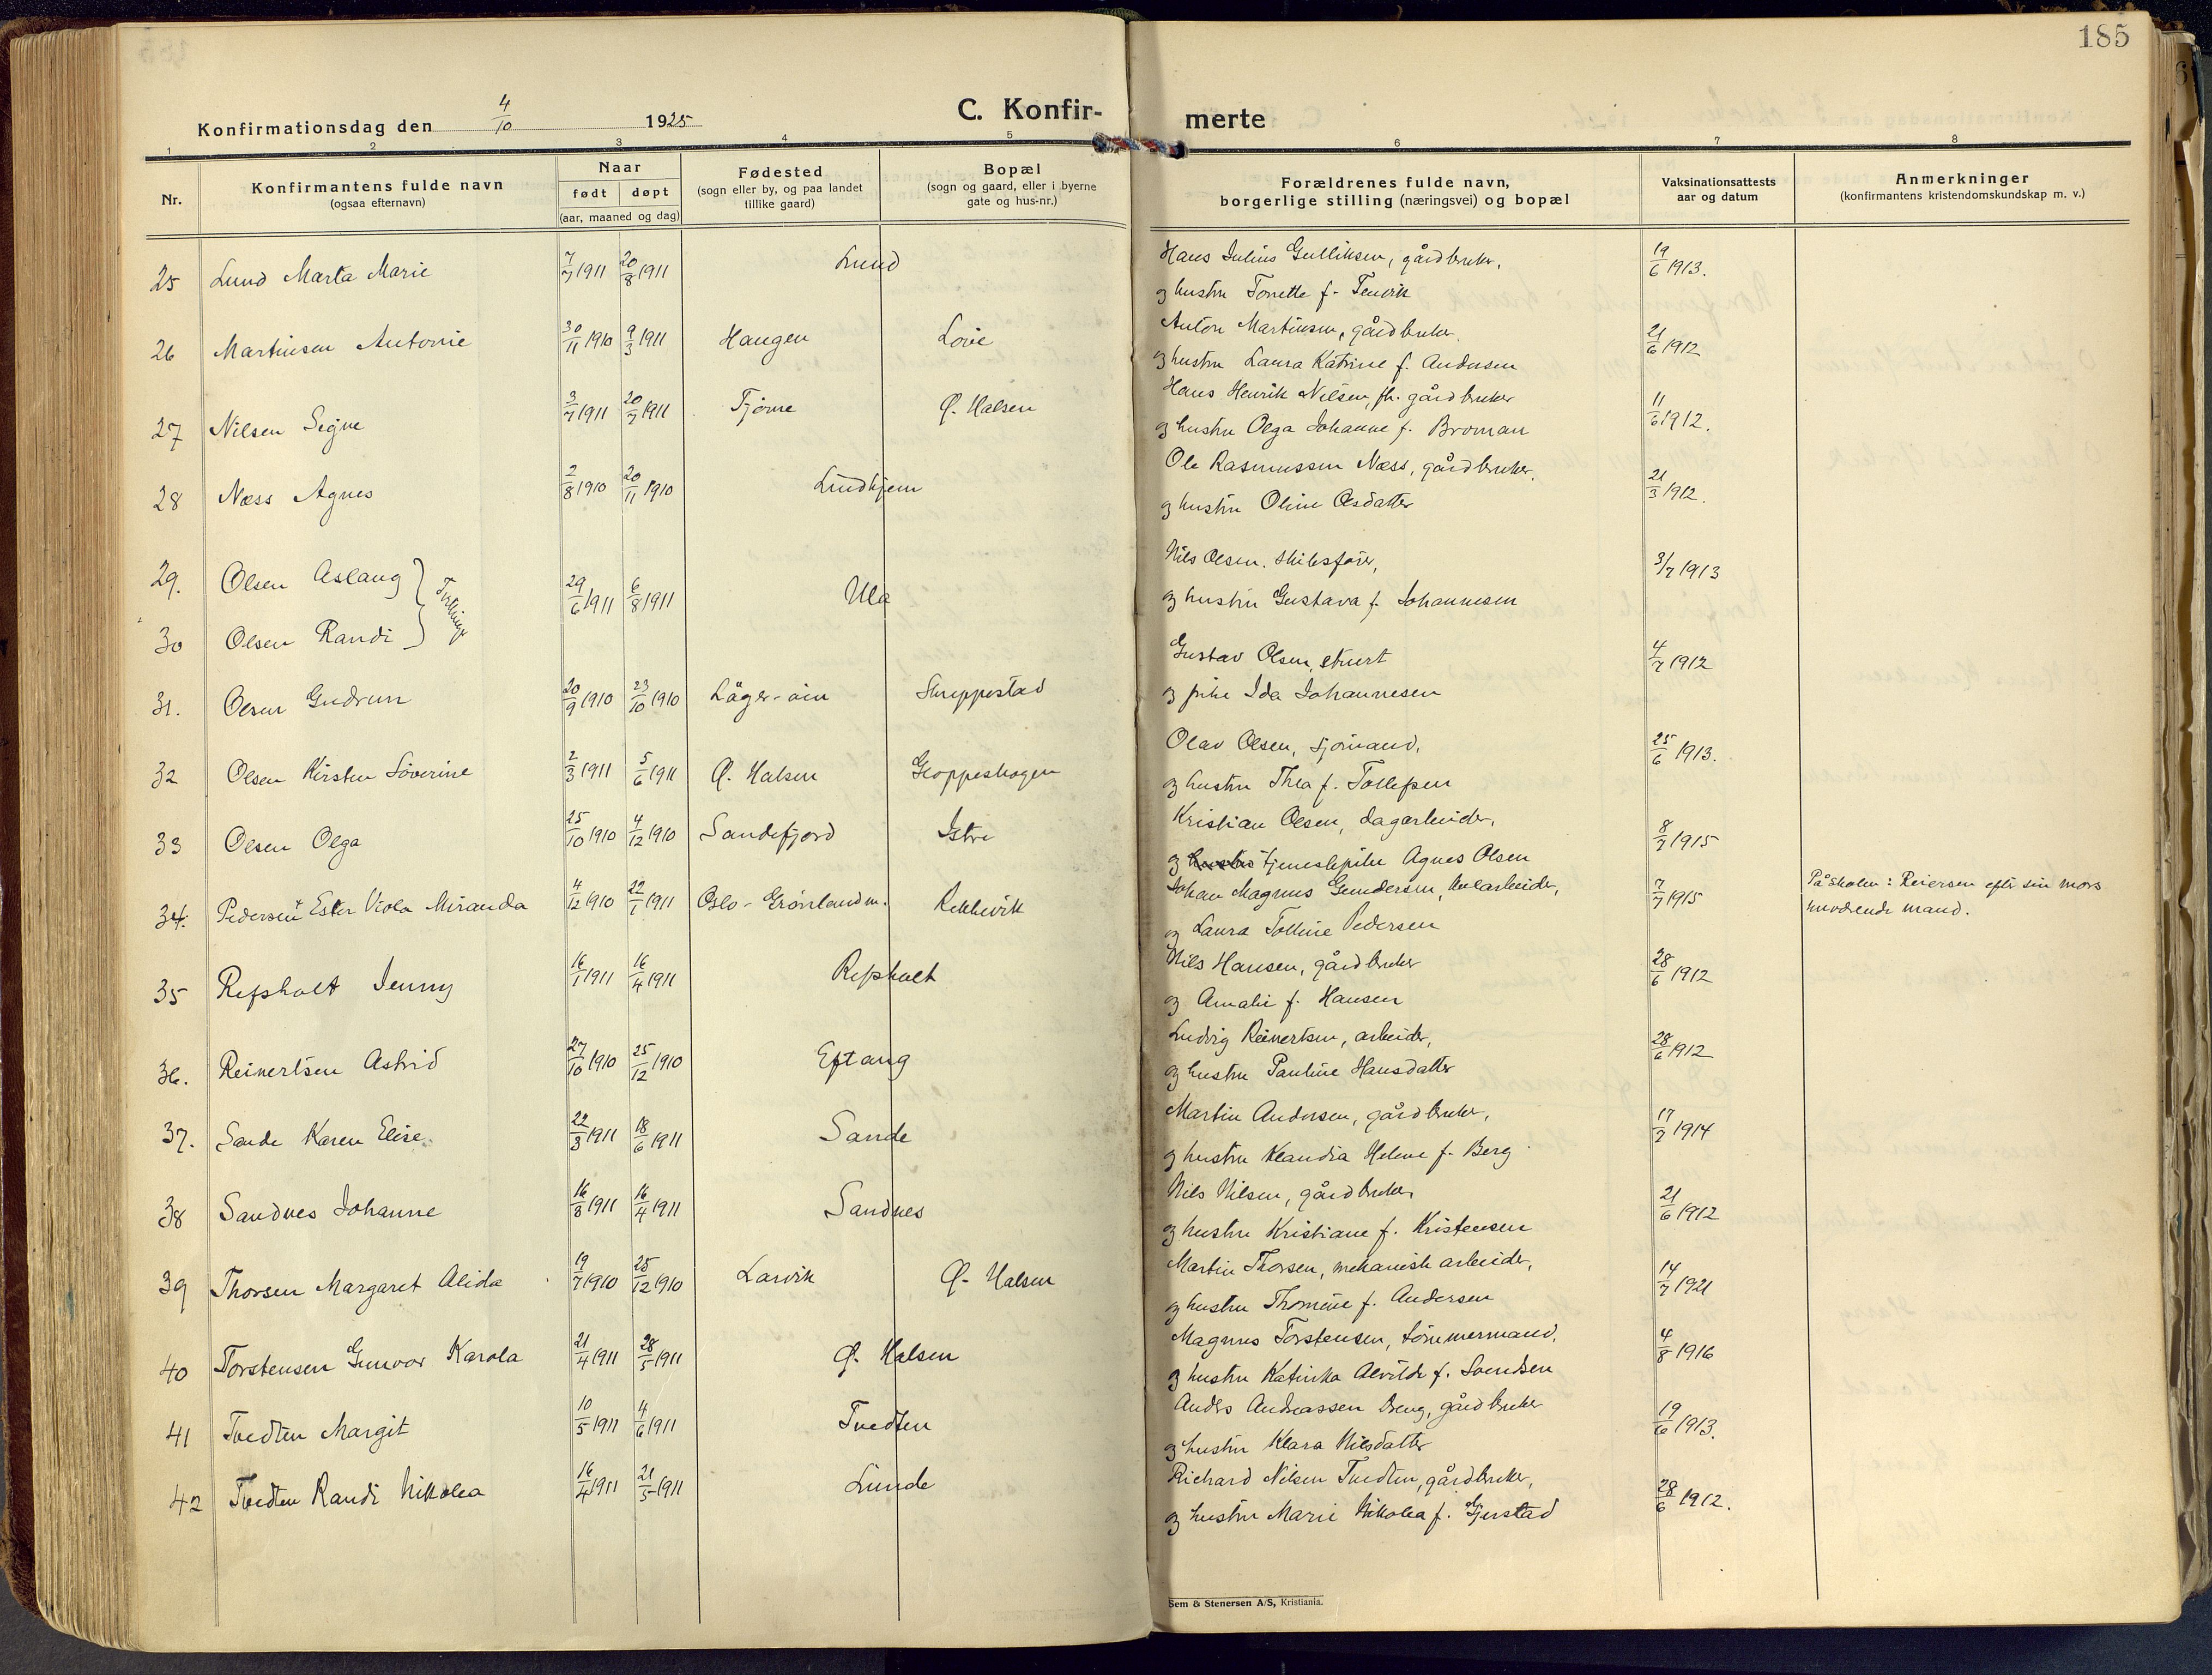 185
Konfirmationsdag den 4/10 1925
C. Konfir- merte
1 2 3 4 5 6 7 8
Nr.
Konfirmantens fulde navn
(ogsaa efternavn)
Naar
født døpt
(aar, maaned og dag)
Fødested
(sogn eller by, og paa landet
tillike gaard)
Bopæl
(sogn og gaard, eller i byerne
gate og hus-nr.)
Forældrenes fulde navn,
borgerlige stilling (næringsvei) og bopæl
Vaksinationsattests
aar og datum
Anmerkninger
(konfirmantens kristendomskundskap m. v.)
25 Lund Marta Marie 7/7 1911 20/8 1911 Lund Hans Julius Gulliksen, gårdbruker, 19/6 1913.
og hustru Tonette f.
26 Martinsen Antonie 30/11 1910 9/3 1911 Haugen Løvie Anton Martinsen, gårdbruker. 21/6 1912
og hustru Laura Katrine f. Andersen
27 Nilsen Signe 3/7 1911 20/7 1911 Tjøme Ø. Halsen Hans Henrik Nilsen, fh. gårdbruker 11/6 1912.
og hustru Olga Johanne f. Broman
28 Næss Agnes 2/8 1910 20/11 1910 Lindhjem Ole Rasmussen Næss, gårdbruker, 21/3 1912.
og hustru Oline Olsdatter
29. Olsen Aslaug } Tvillinger 29/6 1911 6/8 1911 Ula Nils Olsen. skibsfører, 3/7 1913
30 Olsen Randi og hustru Gustava f. Johannesen
31. Olsen Gudrun 20/9 1910 23/10 1910 Låger-øen Skreppestad Gustav Olsen, stuert 4/7 1912
og pike Ida Johannesen
32 Olsen Kirsten Søverine 2/3 1911 5/6 1911 Ø. Halsen Gloppeskogen Olav Olsen, sjømand, 25/6 1913.
og hustru Thea f. Tollefsen
33 Olsen Olga 25/10 1910 4/12 1910 Sandefjord Istre Kristian Olsen, dagarbeider, 8/7 1915
og hustru tjenestepike Agnes Olsen
34. Pedersen Ester Viola Miranda 4/12 1910 22/1 1911 Oslo - Grønland m. Rekkevik Johan Magnus Gundersen, arbeider, 7/7 1915 På skolen: Reiersen efter sin mors
og Laura Tolline Pedersen nuværende mand.
35 Refsholt Jenny 16/1 1911 16/4 1911 Refsholt Nils Hansen, gårdbruker 28/6 1912
og Amalie f. Hansen
36. Reinertsen Astrid 27/10 1910 25/12 1910 Eftang Ludvig Reinertsen, arbeider, 28/6 1912
og hustru Pauline Hansdatter
37. Sande Karen Elise 22/3 1911 18/6 1911 Sande Martin Andersen, gårdbruker, 17/7 1914
og hustru Klaudia Helene f. Berg
38 Sandnes Johanne 16/3 1911 16/4 1911 Sandnes Nils Nilsen, gårdbruker 21/6 1912
og hustru Kristiane f. Kristensen
39 Thorsen Margaret Alida 19/7 1910 25/12 1910 Larvik Ø. Halsen Martin Thorsen, mekanisk arbeider, 14/7 1921
og hustru Thomine f. Andersen
40 Torstensen Gunvor Karola 21/4 1911 28/5 1911 Ø. Halsen Magnus Torstensen, tømmermand, 4/8 1916
og hustru Katinka Alvilde f. Svendsen
41 Tvedten Margit 10/5 1911 4/6 1911 Tvedten Anders Andreassen Dreng, gårdbruker 19/6 1913.
og hustru Klara Nilsdatter
42 Tvedten Randi Nikolea 16/4 1911 21/5 1911 Lunde Richard Nilsen Tvedten, gårdbruker, 28/6 1912.
og hustru Marie Nikolea f. Gjerstad
Sem & Stenersen A/S, Kristiania.